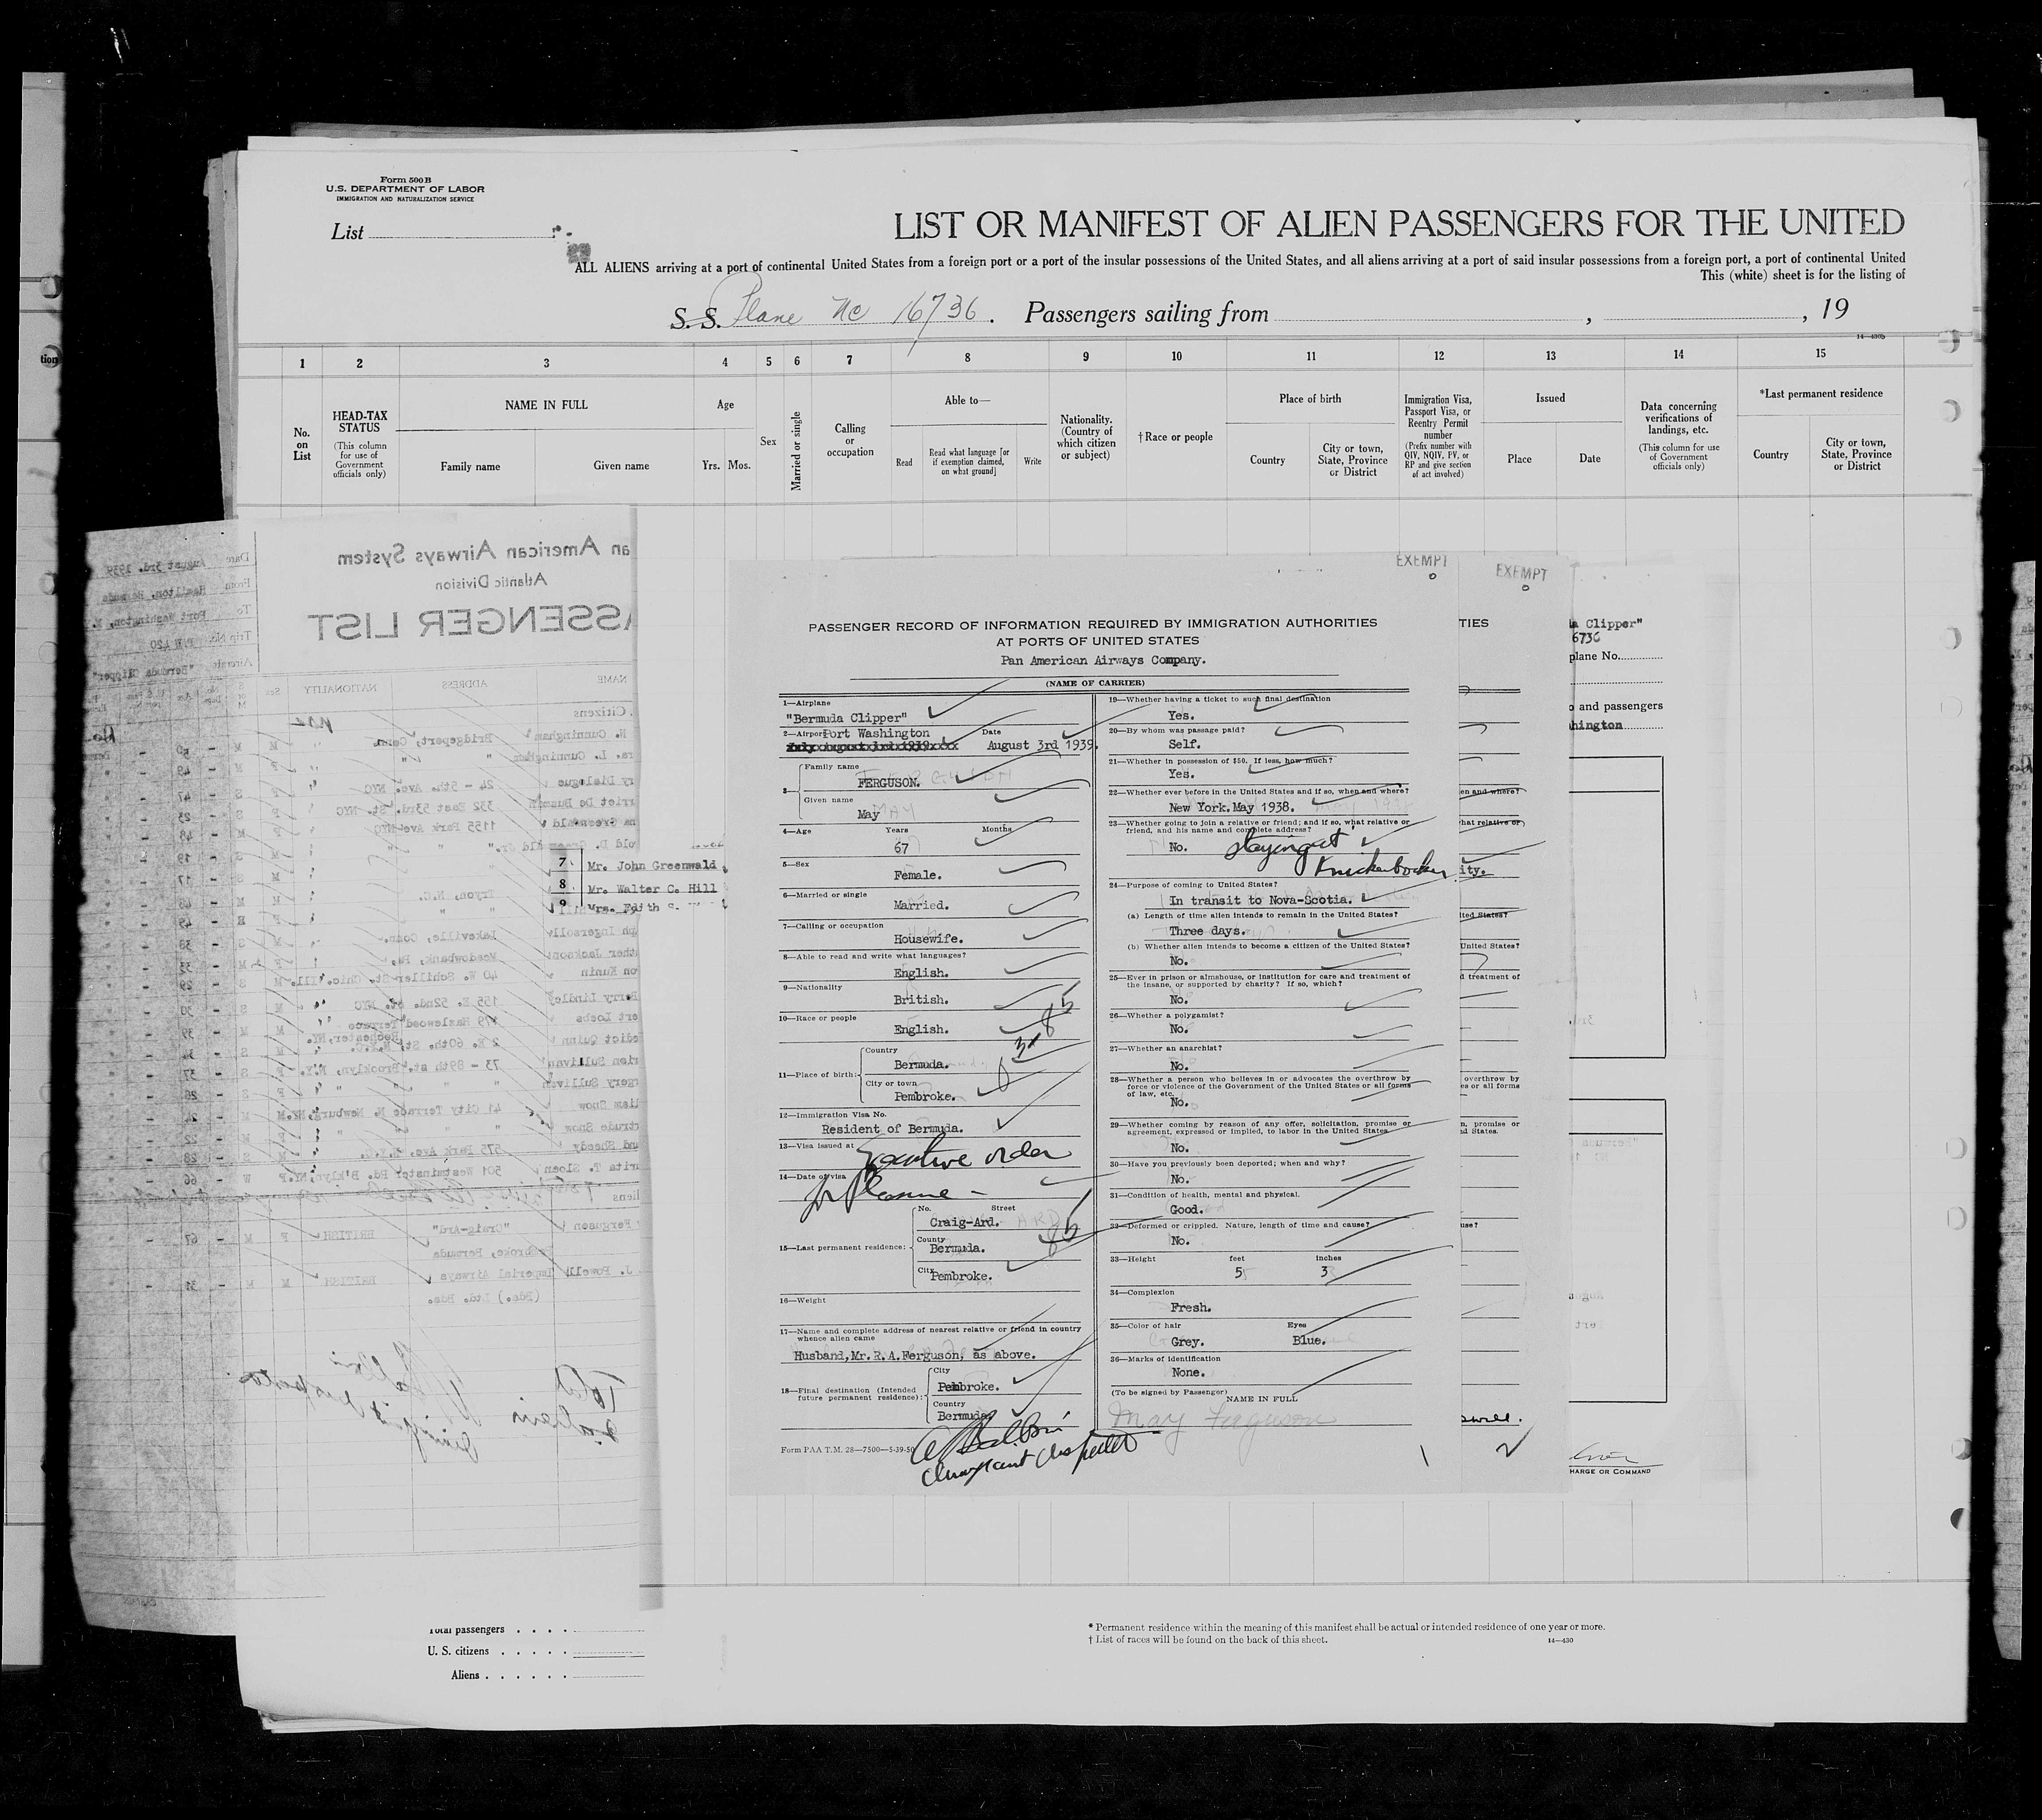 Form 500 B
U.S. DEPARTMENT OF LABOR
IMMIGRATION AND NATURALIZATION SERVICE
List
LIST OR MANIFEST OF ALIEN PASSENGERS FOR THE UNITED
ALL ALIENS arriving at a port of continental United States from a foreign port or a port of the insular possessions of the United States, and all aliens arriving at a port of said insular possessions from a foreign port, a port of continental United
This (white) sheet is for the listing of
S. S. Plane NC 16736. Passengers sailing from , , 19
14—430b
1 2 3 4 5 6 7 8 9 10 11 12 13 14 15
No. on List
HEAD-TAX STATUS
(This column for use of Government officials only)
NAME IN FULL
Family name
Given name
Age
Yrs. Mos.
Sex
Married or single
Calling or occupation
Able to—
Read
Read what language [or if exemption claimed, on what ground]
Write
Nationality. (Country of which citizen or subject)
† Race or people
Place of birth
Country
City or town, State, Province or District
Immigration Visa, Passport Visa, or Reentry Permit number
(Prefix number with QIV, NQIV, PV, or RP and give section of act involved)
Issued
Place
Date
Data concerning verifications of landings, etc.
(This column for use of Government officials only)
*Last permanent residence
Country
City or town, State, Province or District
an American Airways System
Atlantic Division
ASSENGER LIST
Date August 3rd. 1939
From Hamilton, Bermuda
To Port Washington, N.
Trip No.
Aircraft "Bermuda Clipper"
NAME
ADDRESS
NATIONALITY
Sex
Citizens
H. Cunningham Bridgeport, Conn.
rs. L. Cunningham " "
ry Dialogue 24 - 5th. Ave. NYC
332 East 53rd. St. NYC
1155 Park Ave NYC
Tryon, N.C.
ph Ingersoll Lakeville, Conn.
ther Jackson Meadowbank, Pa.
on Kunin 40 W. Schiller St. Chic. Ill.
erry Lindley 155 E. 52nd. St. NYC
ert Loebs 479 Hazlewood Terrace
Rochester, NY.
edict Quinn 2 E. 60th. St. N.Y.C.
rien Sullivan 73 - 89th st. Brooklyn, N.Y.
rgery Sullivan " " "
liam Snow 41 City Terrace N. Newburg, NY.
trude Snow " " "
and Sheedy 575 Park Ave. N.Y.C.
rita T. Sloen 501 Westminster Rd. B'klyn, NY.
iens
Ferguson "Craig-Ard" BRITISH F M 67
Pembroke, Bermuda
J. Powell Imperial Airways BRITISH M M 31
(Bda.) Ltd. Bda.
7 Mr. John Greenwald
8 Mr. Walter C. Hill
9 Mrs. Edith S.
EXEMPT
EXEMPT
PASSENGER RECORD OF INFORMATION REQUIRED BY IMMIGRATION AUTHORITIES
AT PORTS OF UNITED STATES
Pan American Airways Company.
(NAME OF CARRIER)
1—Airplane
"Bermuda Clipper"
2—Airport Port Washington Date
August 3rd 1939.
3—
Family name
FERGUSON.
Given name
May
4—Age Years Months
67
5—Sex
Female.
6—Married or single
Married.
7—Calling or occupation
Housewife.
8—Able to read and write what languages?
English.
9—Nationality
British.
10—Race or people
English.
11—Place of birth:
Country
Bermuda.
City or town
Pembroke.
12—Immigration Visa No.
Resident of Bermuda.
13—Visa issued at
Executive order
14—Date of visa
15—Last permanent residence:
No. Street
Craig-Ard.
County
Bermuda.
City
Pembroke.
16—Weight
17—Name and complete address of nearest relative or friend in country
whence alien came
Husband,Mr.R.A.Ferguson, as above.
18—Final destination (Intended
future permanent residence):
City
Pembroke.
Country
Bermuda.
Form PAA T.M. 28—7500—5-39-50
19—Whether having a ticket to such final destination
Yes.
20—By whom was passage paid?
Self.
21—Whether in possession of $50. If less, how much?
Yes.
22—Whether ever before in the United States and if so, when and where?
New York.May 1938.
23—Whether going to join a relative or friend; and if so, what relative or
friend, and his name and complete address?
No. Staying at
Knickerbocker
24—Purpose of coming to United States?
In transit to Nova-Scotia.
(a) Length of time alien intends to remain in the United States?
Three days.
(b) Whether alien intends to become a citizen of the United States?
No.
25—Ever in prison or almshouse, or institution for care and treatment of
the insane, or supported by charity? If so, which?
No.
26—Whether a polygamist?
No.
27—Whether an anarchist?
No.
28—Whether a person who believes in or advocates the overthrow by
force or violence of the Government of the United States or all forms
of law, etc.
No.
29—Whether coming by reason of any offer, solicitation, promise or
agreement, expressed or implied, to labor in the United States.
No.
30—Have you previously been deported; when and why?
No.
31—Condition of health, mental and physical.
Good.
32—Deformed or crippled. Nature, length of time and cause?
No.
33—Height feet inches
5 3
34—Complexion
Fresh.
35—Color of hair Eyes
Grey. Blue.
36—Marks of identification
None.
(To be signed by Passenger)
NAME IN FULL
May Ferguson
Immigrant Inspector
TIES
en and where?
hat relative or
ity.
ited States?
United States?
d treatment of
overthrow by
es or all forms
n, promise or
ed States.
use?
a Clipper"
6736
plane No.
o and passengers
hington
HARGE OR COMMAND
Total passengers
U. S. citizens
Aliens
* Permanent residence within the meaning of this manifest shall be actual or intended residence of one year or more.
† List of races will be found on the back of this sheet.
14—430